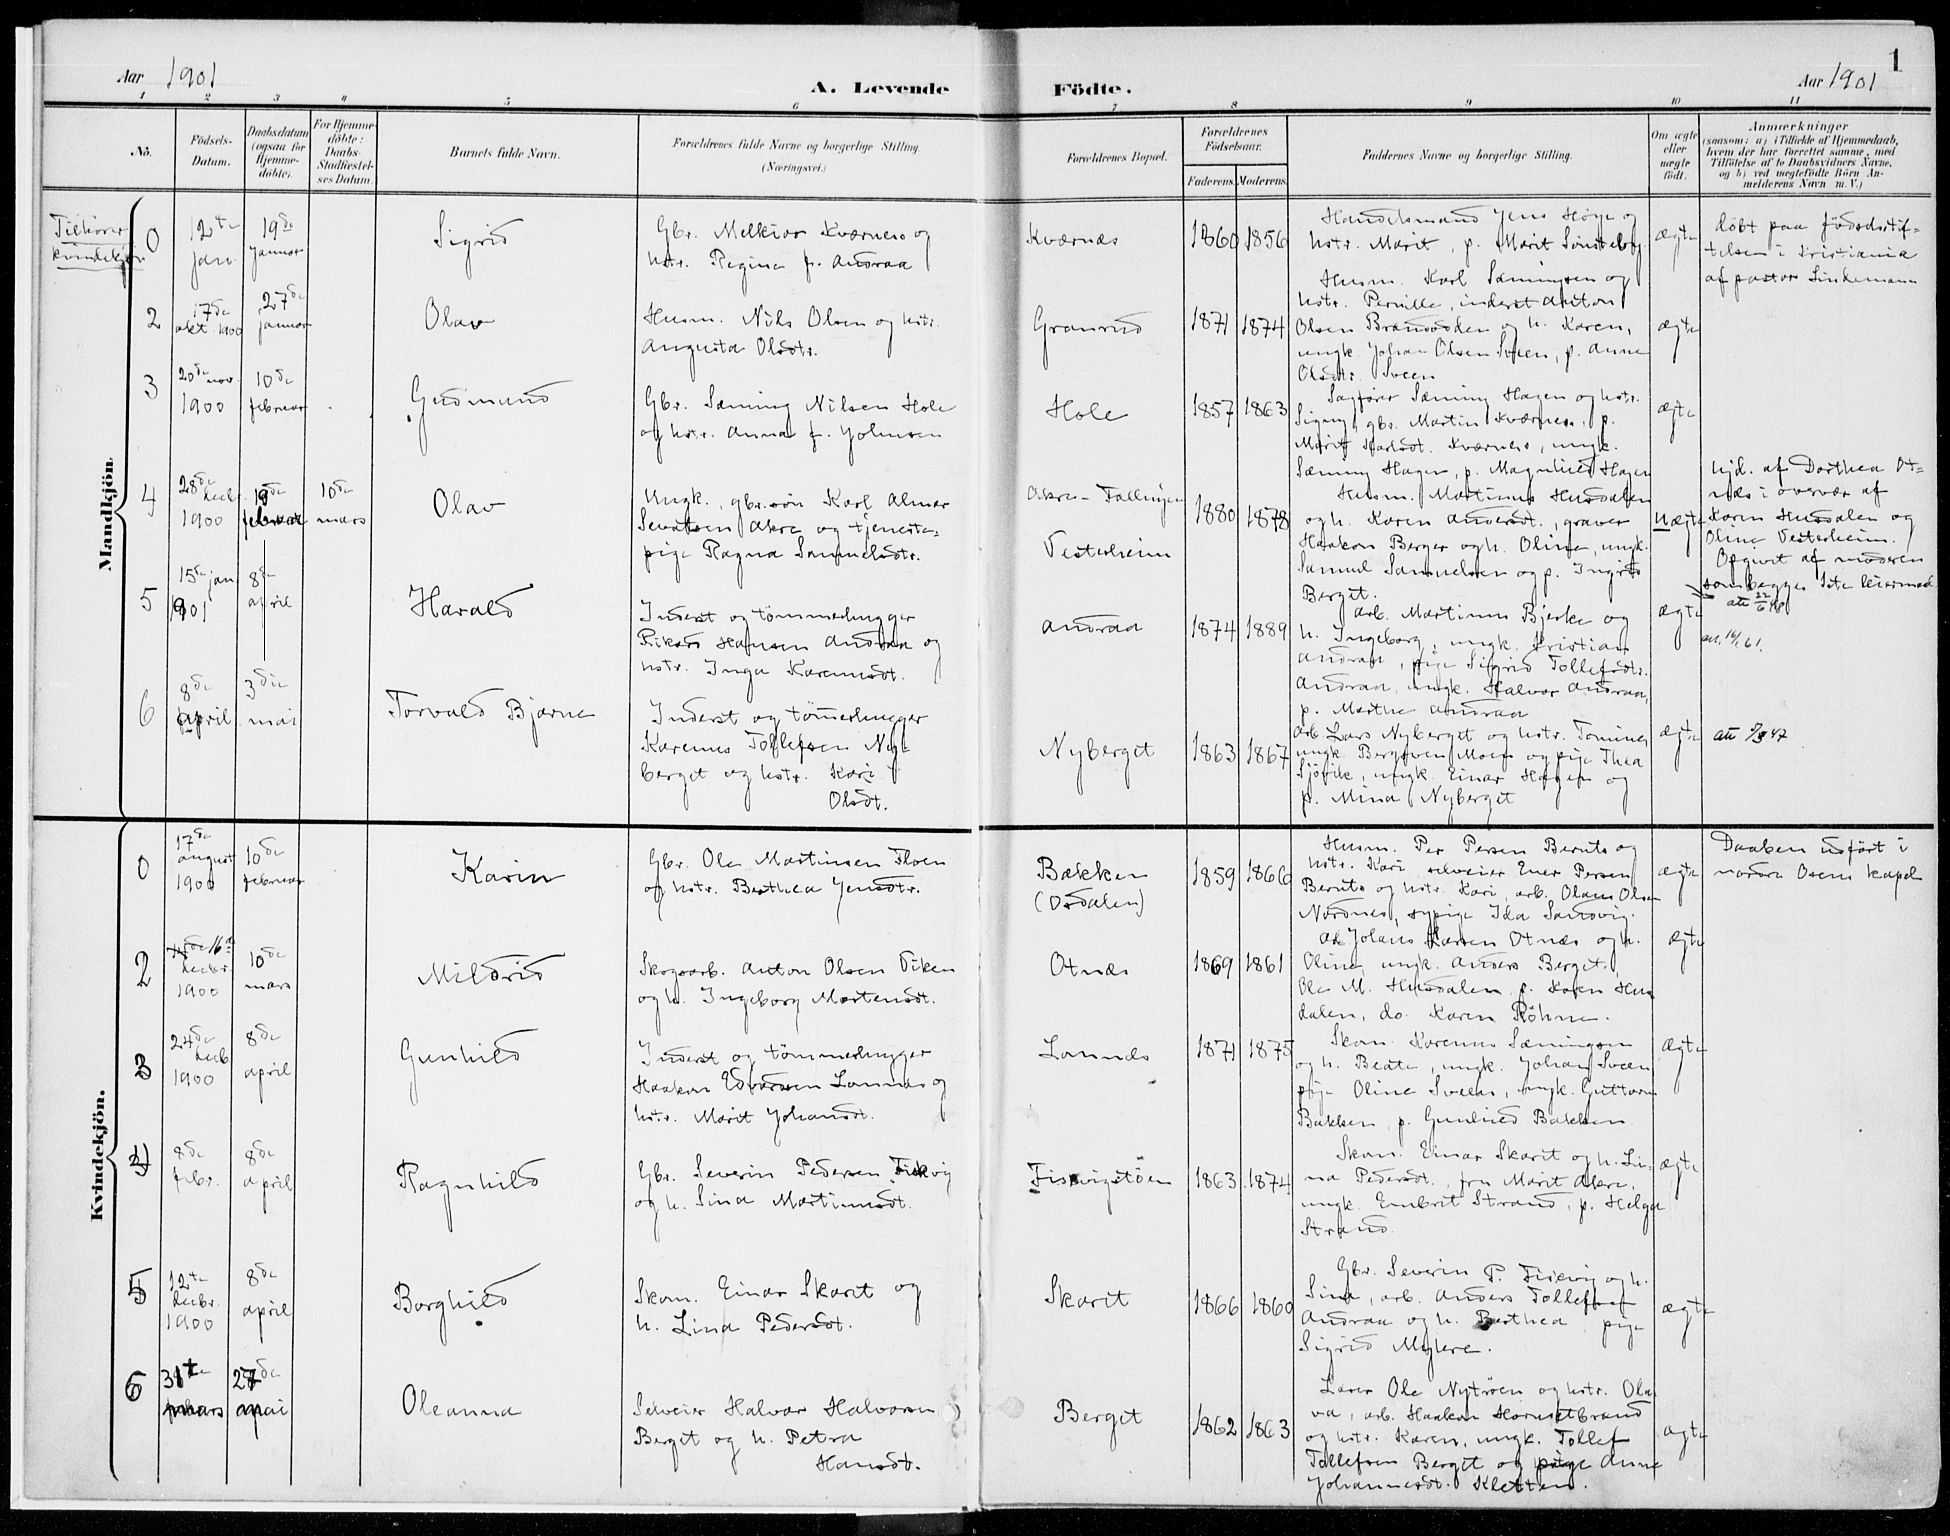 1
Aar 1901
A. Levende Födte.
Aar 1901
1 2 3 4 5 6 7 8 9 10 11
No.
Födsels-Datum.
Daabsdatum (ogsaa for Hjemmedöbte).
For Hjemmedöbte: Daabs-Stadfæstelses Datum.
Barnets fulde Navn.
Forældrenes fulde Navne og borgerlige Stilling. (Næringsvei.)
Forældrenes Bopæl.
Forældrenes Födselsaar.
Faderens. Moderens.
Faddernes Navne og borgerlige Stilling.
Om ægte eller uægte födt.
Anmærkninger
(saasom: a) i Tilfælde af Hjemmedaab,
hvem der har forrettet samme, med
Tilföielse af to Daabsvidners Navne,
og b) ved uegtefödte Börn An-
melderens Navn m. V.)
Mandkjön.
Tilhører
kvindekjön
0
12te
jan.
19de
januar
Sigrid
Gbr. Melkior Kværness og
hstr. Regina f. Andraa
Kværnæs
1860 1856
Handelsmand Jens Høye og
hstr. Marit, p. Marit Sønsteby
ægte
Døbt paa fødselsstif-
telsen i Kristiania
af pastor Lindemann
2
17de
okt. 1900
27de
januar
Olav
Husm. Nils Olsen og hstr.
Augusta Olsdtr.
Granrud
1871 1874
Husm. Karl Sæmingsen og
hstr. Pernille, inderst Anton
Olsen Brandvolden og h. Karen,
ungk. Johan Olsen Sveen, p. Anne
Olsdtr. Sveen
ægte
3
20de nov.
1900
10de
februar
Gudmund
Gbr. Sæming Nilsen Hole
og hstr. Anna f. Johnsen
Hole
1857 1863
Sagfører Sæming Hagen og hstr.
Signy, gbr. Martin Kværness, p.
Marit Karlsdt. Kværness, ungk.
Sæming Hagen, p. Magnhild Hagen
ægte
4
28de
decbr.
1900
februar
10de
mars
Olav
Ungk., gbr.søn Karl Almar
Sevaldsen Akre og tjeneste-
pige Ragna Samuelsdtr.
Akre-Fallingen
Vesterheim
1880 1878
Husm. Martinus Husdalen
og h. Karen Andersdt., graver
Haakon Berger og h. Oline, ungk.
Samuel Samuelsen og p. Ingrid
Berget.
Uægte
Hjd. af Dorthea Ot-
næs i overvær af
Karen Husdalen og
Oline Vesterheim.
Opgivet af moderen
som begges 1ste leiermaal
5
15de jan
1901
8de
april
Harald
Inderst og tømmerhugger
Rikard Hansen Andraa og
hstr. Inga Karenusdt.
Andraa
1874 1889
Arb. Martinus Bjerke og
h. Ingeborg, ungk. Kristian
Andraa, pige Sigrid Tollefsdtr.
Andraa, ungk. Halvor Andraa,
p. Marthe Andraa
ægte
6
8de
april
3die
mai
Torvald Bjarne
Inderst og tømmerhugger
Karenus Tollefsen Ny-
berget og hstr. Kari
Olsdt.
Nyberget
1863 1867
Arb. Lars Nyberget og hstr. Tomine,
ungk. Bergsven Moen og pige Thea
Sjøvik, ungk. Einar Hagen og
p. Mina Nyberget
ægte
Kvindekjön.
0
17de
august
1900
10de
februar
Karin
Gbr. Ole Martinsen Floen
og hstr. Berthea Jensdtr.
Bækken
(Osdalen)
1859 1866
Husm. Per Persen Beruts og
hstr. Kari, selveier Ener Persen
Beruts og hstr. Kari, arb. Olaus Olsen
Nordnes, sypige Ida Sandvig.
ægte
Daaben udført i
nordre Osens kapel
2
16de
decbr.
1900
10de
mars
Mildrid
Skogsarb. Anton Olsen Viken
og h. Ingeborg Mortensdt.
Otnæs
1869 1861
Johans Larsen Otnæs og h.
Oline, ungk. Anders Berget,
Ole M. Husdalen, p. Karen Hus-
dalen, do. Karen Røhne.
ægte
3
24de
decb.
1900
8de
april
Gunhild
Inderst og tømmerhugger
Haakon Edvardsen Lonnæs og
hstr. Marit Johansdt.
Lonnæs
1871 1875
Skom. Karenus Sæmingsen
og h. Beate, ungk. Johan Sveen
pige Oline Sveen, ungk. Guttorm
Bakken, p. Gunhild Bakken
ægte
4
8de
febr.
8de
april
Ragnhild
Gbr. Severin Pedersen Fiskvig
og h. Sina Martinusdt.
Fiskvigstøen
1863 1874
Skom. Einar Skarit og h. Li-
na Pedersdt., fru Marit Akre,
ungk. Embret Strand, p. Helga
Strand.
ægte
5
12te
decbr.
1900
8de
april
Borghild
Skom. Einar Skarit og
h. Lina Pedersdt.
Skarit
1866 1860
Gbr. Severin P. Fiskvig og h.
Sina, arb. Anders Tollefsen
Andraa og h. Berthea, pige
Sigrid Myhre.
ægte
6
31te
mars
27de
mai
Oleanna
Selveier Halvor Halvorsen
Berget og h. Petra
Hansdt.
Berget
1862 1863
Lærer Ole Nytrøen og hstr. Ola-
va, arb. Haakon Hornsetbrand
og hstr. Karen, ungk. Tollef
Tollefsen Berget og pige Anne
Johannesdt. Kletten.
ægte